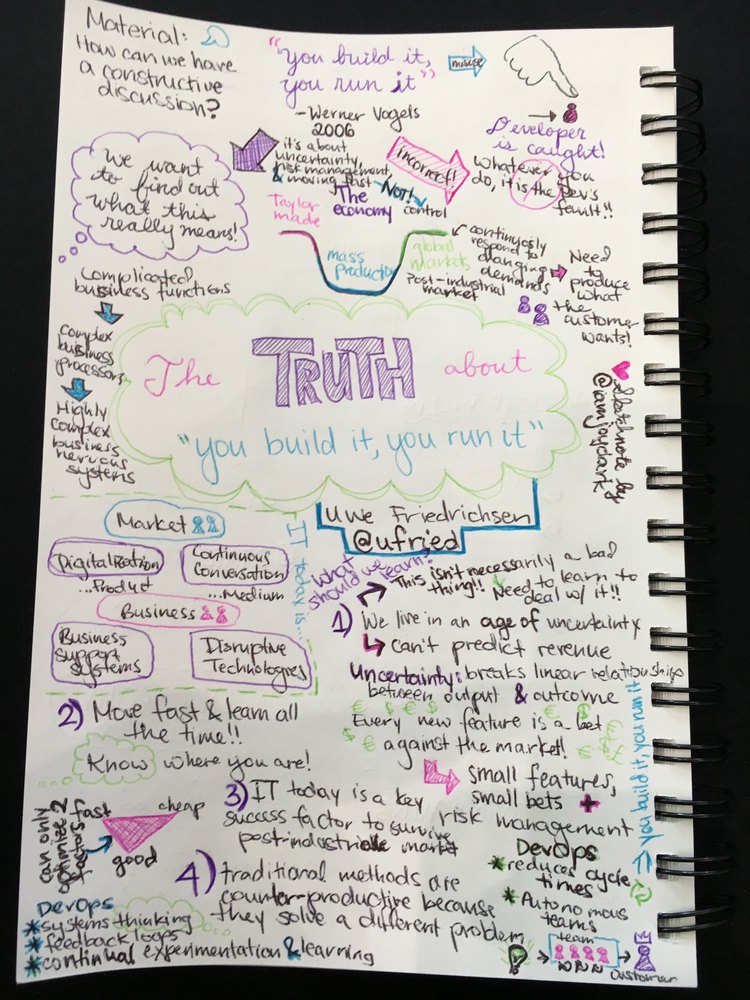 Material:
How can we have
a constructive
discussion?
"you build it,
you run it"
misuse
- Werner Vogels
2006
Developer
is caught!
Whatever you
do, it is the Dev's
fault!!
it's about
uncertainty,
risk management,
& moving fast
Not!
control
incorrect!
We want
to find out
what this
really means!
The
economy
Taylor
made
mass
production
global
markets
continuously
respond to
changing
demands
Post-industrial
market
Need
to
produce
what
the
customer
wants!
Complicated
business functions
Complex
business
processors
Highly
complex
business
nervous
systems
The TRUTH about
"you build it, you run it"
Sketchnote by
@iamjaydark
Uwe Friedrichsen
@ufried
IT today is...
Market
Digitalization
...Product
Continuous
Conversation
...Medium
Business
Business
support
systems
Disruptive
Technologies
What
should we
learn?
This isn't necessarily a bad
thing!! Need to learn to
deal w/ it!!
1) We live in an age of uncertainty
can't predict revenue
Uncertainty: breaks linear relationships
between output & outcome
€ $ € $ €
Every new feature is a bet
against the market!
small features,
small bets +
risk management
=> you build it, you run it
2) Move fast & learn all
the time!!
Know where you are!
can only
optimize 2
factors
fast
cheap
good
3) IT today is a key
success factor to survive
post-industrial market
4) traditional methods are
counter-productive because
they solve a different problem
DevOps
* systems thinking
* feedback loops
* continual experimentation & learning
DevOps
* reduces cycle
times
* Autonomous
teams
team
customer